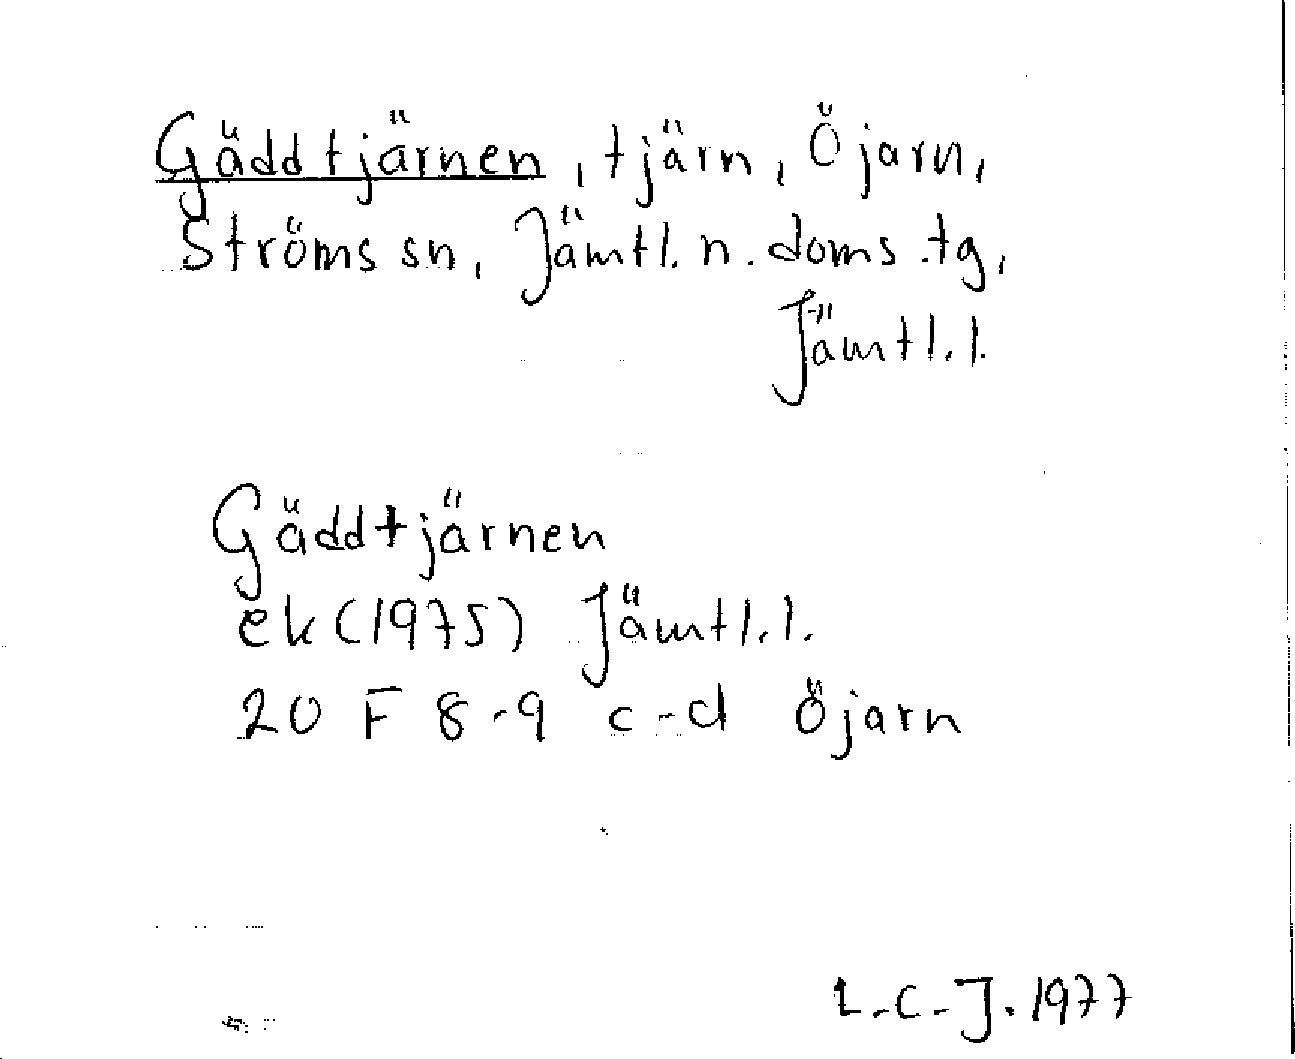 Gäddtjärnen, tjärn, Öjarn,
Ströms sn, Jämtl. n. doms.tg,
Jämtl.l.
Gäddtjärnen
ek (1975) Jämtl.l.
20 F 8-9 c-d Öjarn
L.C-J. 1977